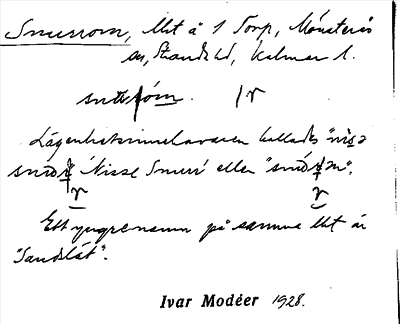 Smurrom, lht å 1 Torp, Mönsterås
sn, Stranda hd, Kalmar l.
Lägenhetsinnehavaren kallades "nisə
"Nisse Smurr" eller
Ett yngre namn på samma lht är
"Sandslätt".
Ivar Modéer 1928.